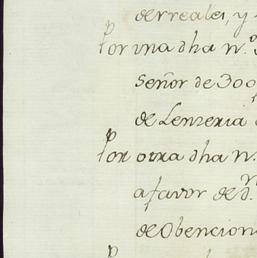 de rreales, y
Por una dha n.º
Señor de 300
de Lenzeria
Por otra dha n.
a favor de D.
de Obencion